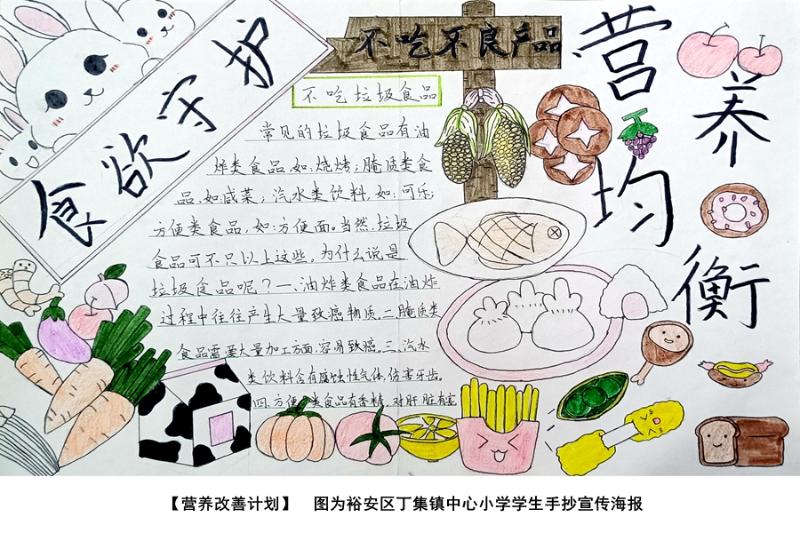 食欲守护
不吃不良产品
营养均衡
不吃垃圾食品
常见的垃圾食品有油
炸类食品如:烧烤;腌质类食
品,如咸菜;汽水类饮料,如:可乐,
方便类食品,如:方便面。当然,垃圾
食品可不只以上这些。为什么说是
垃圾食品呢?一、油炸类食品在油炸
过程中往往产生大量致癌物质。二、腌质类
食品需要大量加工方面,容易致癌。三、汽水
类饮料含有腐蚀性气体,伤害牙齿。
四、方便类食品有香精,对肝脏有害
【营养改善计划】 图为裕安区丁集镇中心小学学生手抄宣传海报